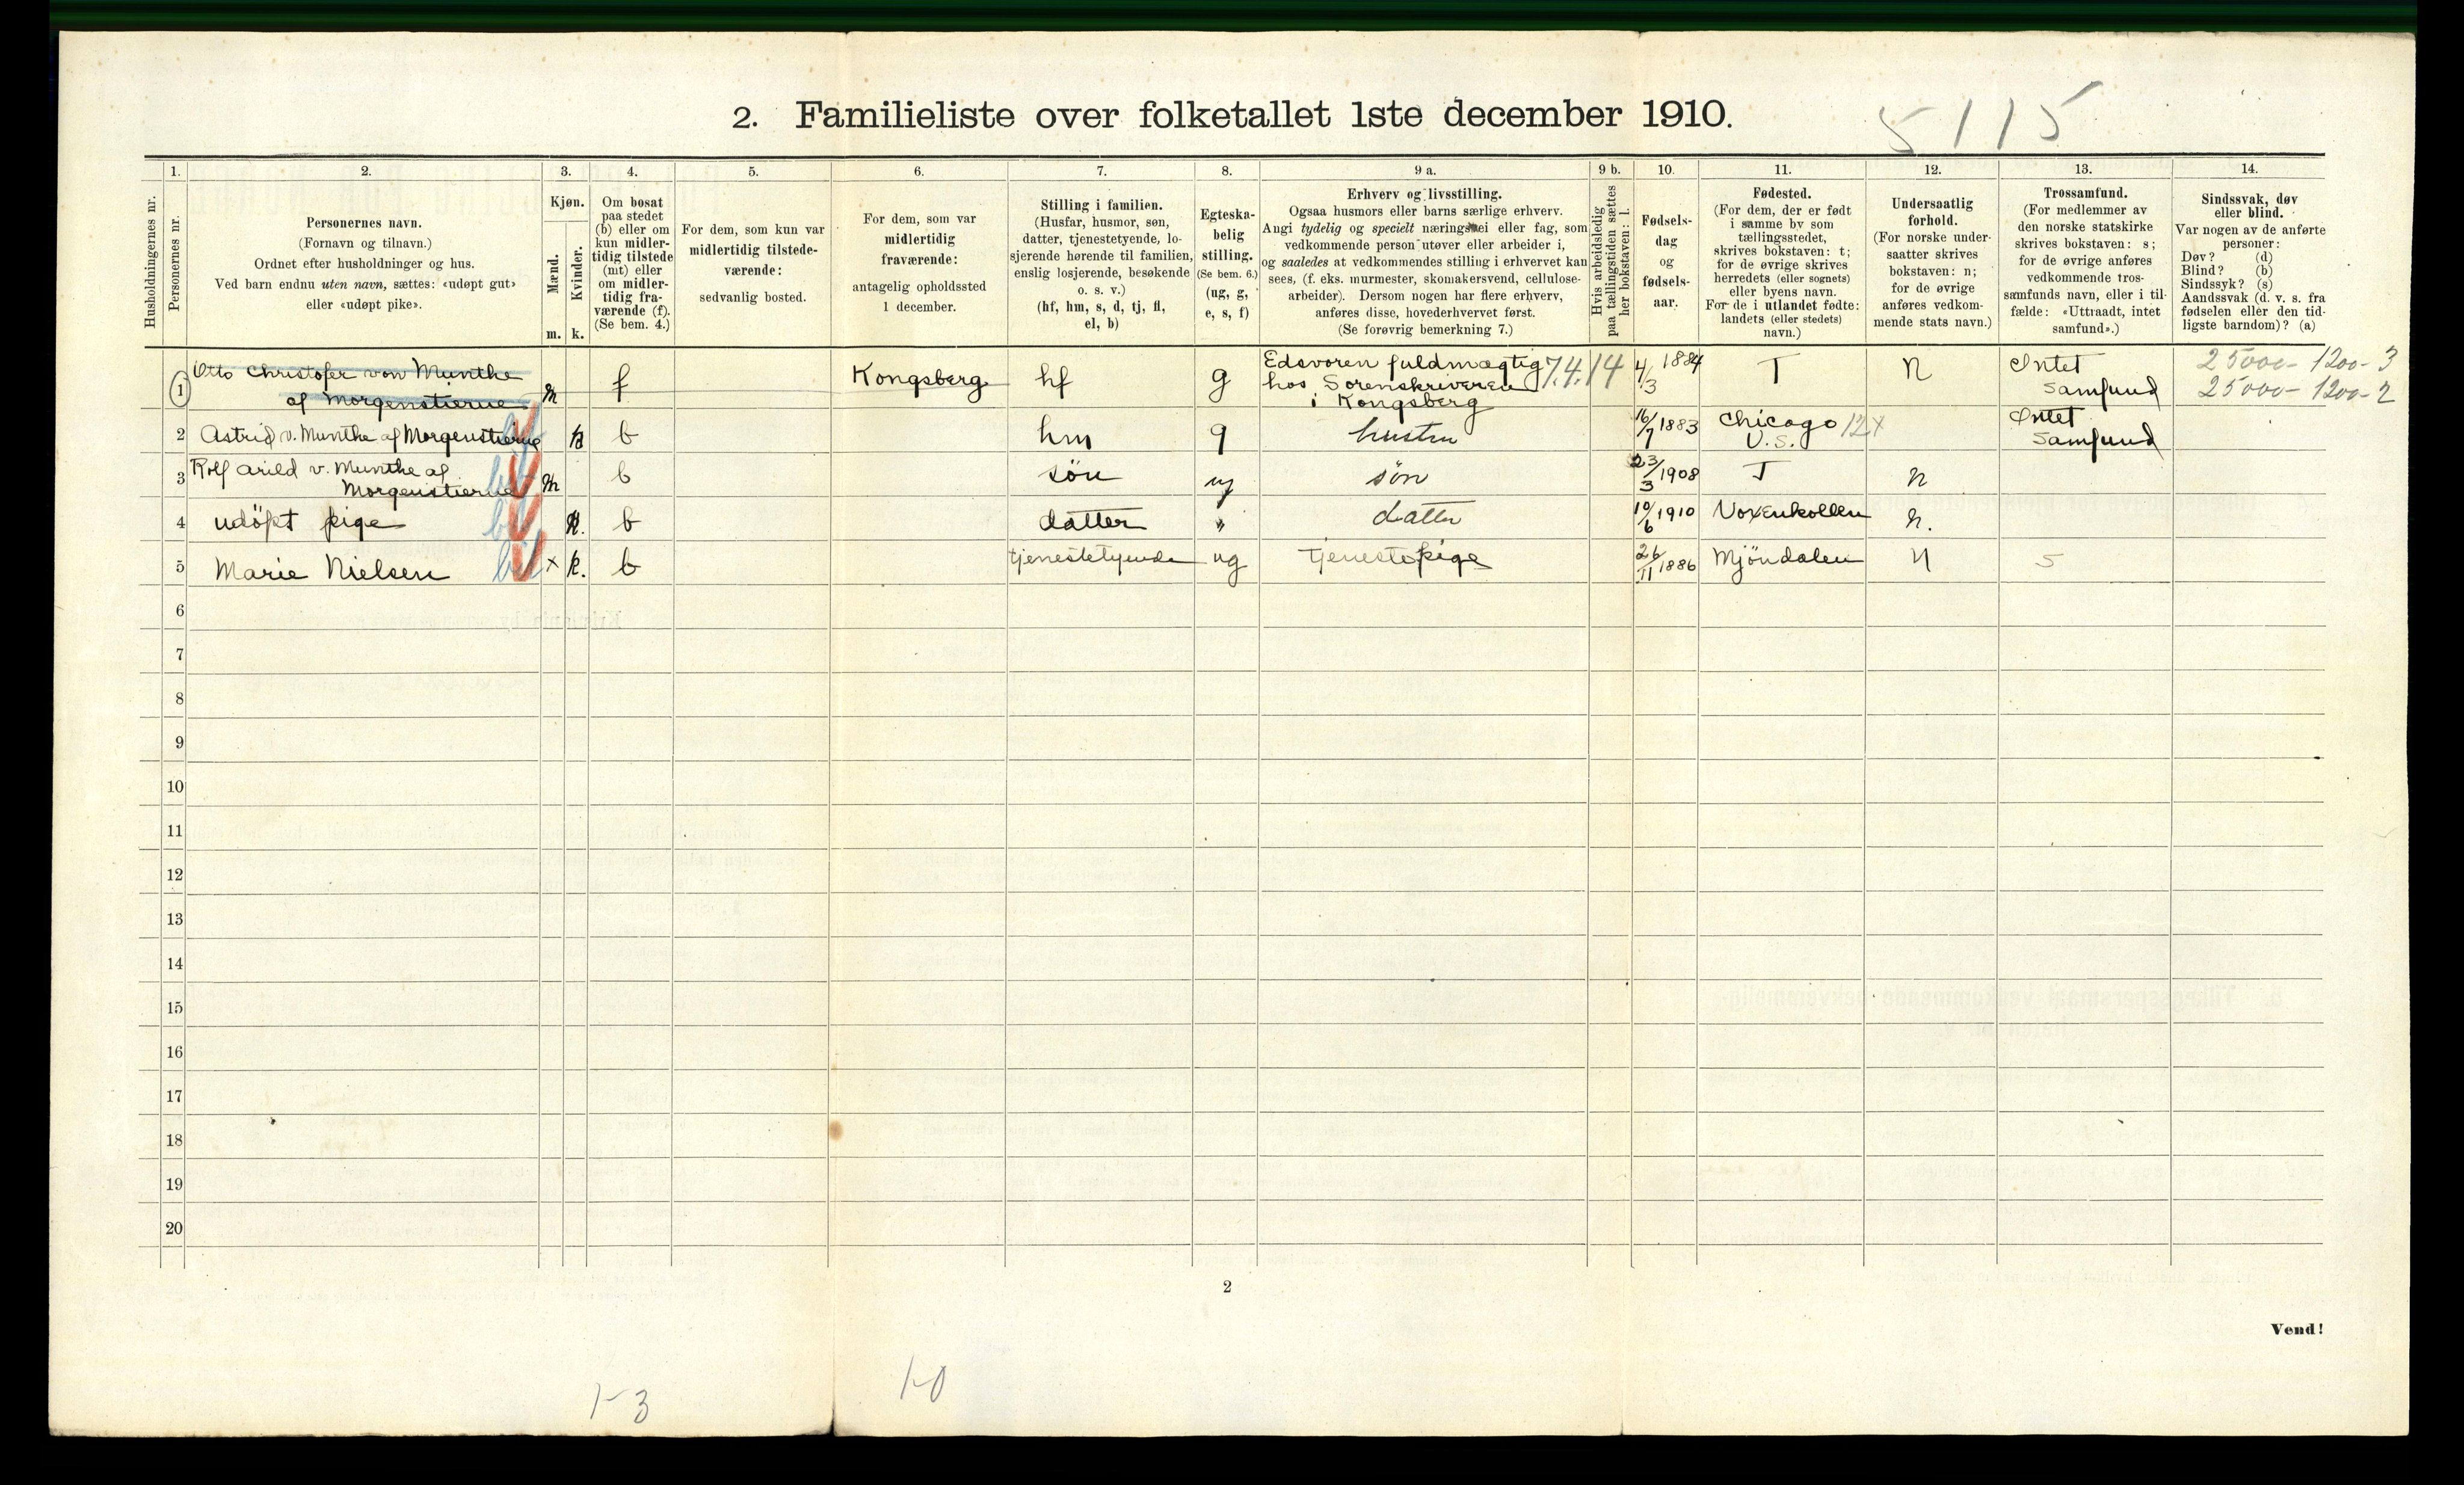 2. Familieliste over folketallet 1ste december 1910.
5115
Husholdningernes nr.
1.
Personernes nr.
2.
Personernes navn.
(Fornavn og tilnavn.)
Ordnet efter husholdninger og hus.
Ved barn endnu uten navn, sættes: «udøpt gut»
eller «udøpt pike».
3.
Kjøn.
Mænd.
Kvinder.
m. k.
4.
Om bosat
paa stedet
(b) eller om
kun midler-
tidig tilstede
(mt) eller
om midler-
tidig fra-
værende (f).
(Se bem. 4.)
5.
For dem, som kun var
midlertidig tilstede-
værende:
sedvanlig bosted.
6.
For dem, som var
midlertidig
fraværende:
antagelig opholdssted
1 december.
7.
Stilling i familien.
(Husfar, husmor, søn,
datter, tjenestetyende, lo-
sjerende hørende til familien,
enslig losjerende, besøkende
o. s. v.)
(hf, hm, s, d, tj, fl,
el, b)
8.
Egteska-
belig
stilling.
(Se bem. 6.)
(ug, g,
e, s, f)
9 a.
Erhverv og livsstilling.
Ogsaa husmors eller barns særlige erhverv.
Angi tydelig og specielt næringsvei eller fag, som
vedkommende person utøver eller arbeider i,
og saaledes at vedkommendes stilling i erhvervet kan
sees, (f. eks. murmester, skomakersvend, cellulose-
arbeider). Dersom nogen har flere erhverv,
anføres disse, hovederhvervet først.
(Se forøvrig bemerkning 7.)
9 b.
Hvis arbeidsledig
paa tællingstiden sættes
her bokstaven: l.
10.
Fødsels-
dag
og
fødsels-
aar.
11.
Fødested.
(For dem, der er født
i samme by som
tællingsstedet,
skrives bokstaven: t;
for de øvrige skrives
herredets (eller sognets)
eller byens navn.
For de i utlandet fødte:
landets (eller stedets)
navn.)
12.
Undersaatlig
forhold.
(For norske under-
saatter skrives
bokstaven: n;
for de øvrige
anføres vedkom-
mende stats navn.)
13.
Trossamfund.
(For medlemmer av
den norske statskirke
skrives bokstaven: s;
for de øvrige anføres
vedkommende tros-
samfunds navn, eller i til-
fælde: «Uttraadt, intet
samfund».)
14.
Sindssvak, døv
eller blind.
Var nogen av de anførte
personer:
Døv? (d)
Blind? (b)
Sindssyk? (s)
Aandssvak (d. v. s. fra
fødselen eller den tid-
ligste barndom)? (a)
1 Otto Christofer von Munthe
af Morgenstierne m f Kongsberg hf g
Edsvoren fuldmægtig
hos Sorenskriveren
i Kongsberg
7.4.14 4/3 1884 T N
Intet
samfund
25000- 1200-3
25000- 1200-2
2 Astrid v. Munthe af Morgenstierne k b hm g hustru 16/7 1883 Chicago
U.S. 12+
Intet
samfund
3 Rolf Arild v. Munthe af
Morgenstierne m b søn ug søn 23/3 1908 T n
4 udöpt pige k. b datter " datter 10/6 1910 Voxenkollen n.
5 Marie Nielsen x k. b tjenestetyende ug Tjenestepige 26/11 1886 Mjöndalen N s
6
7
8
9
10
11
12
13
14
15
16
17
18
19
20
2
Vend!
1-3
1-0